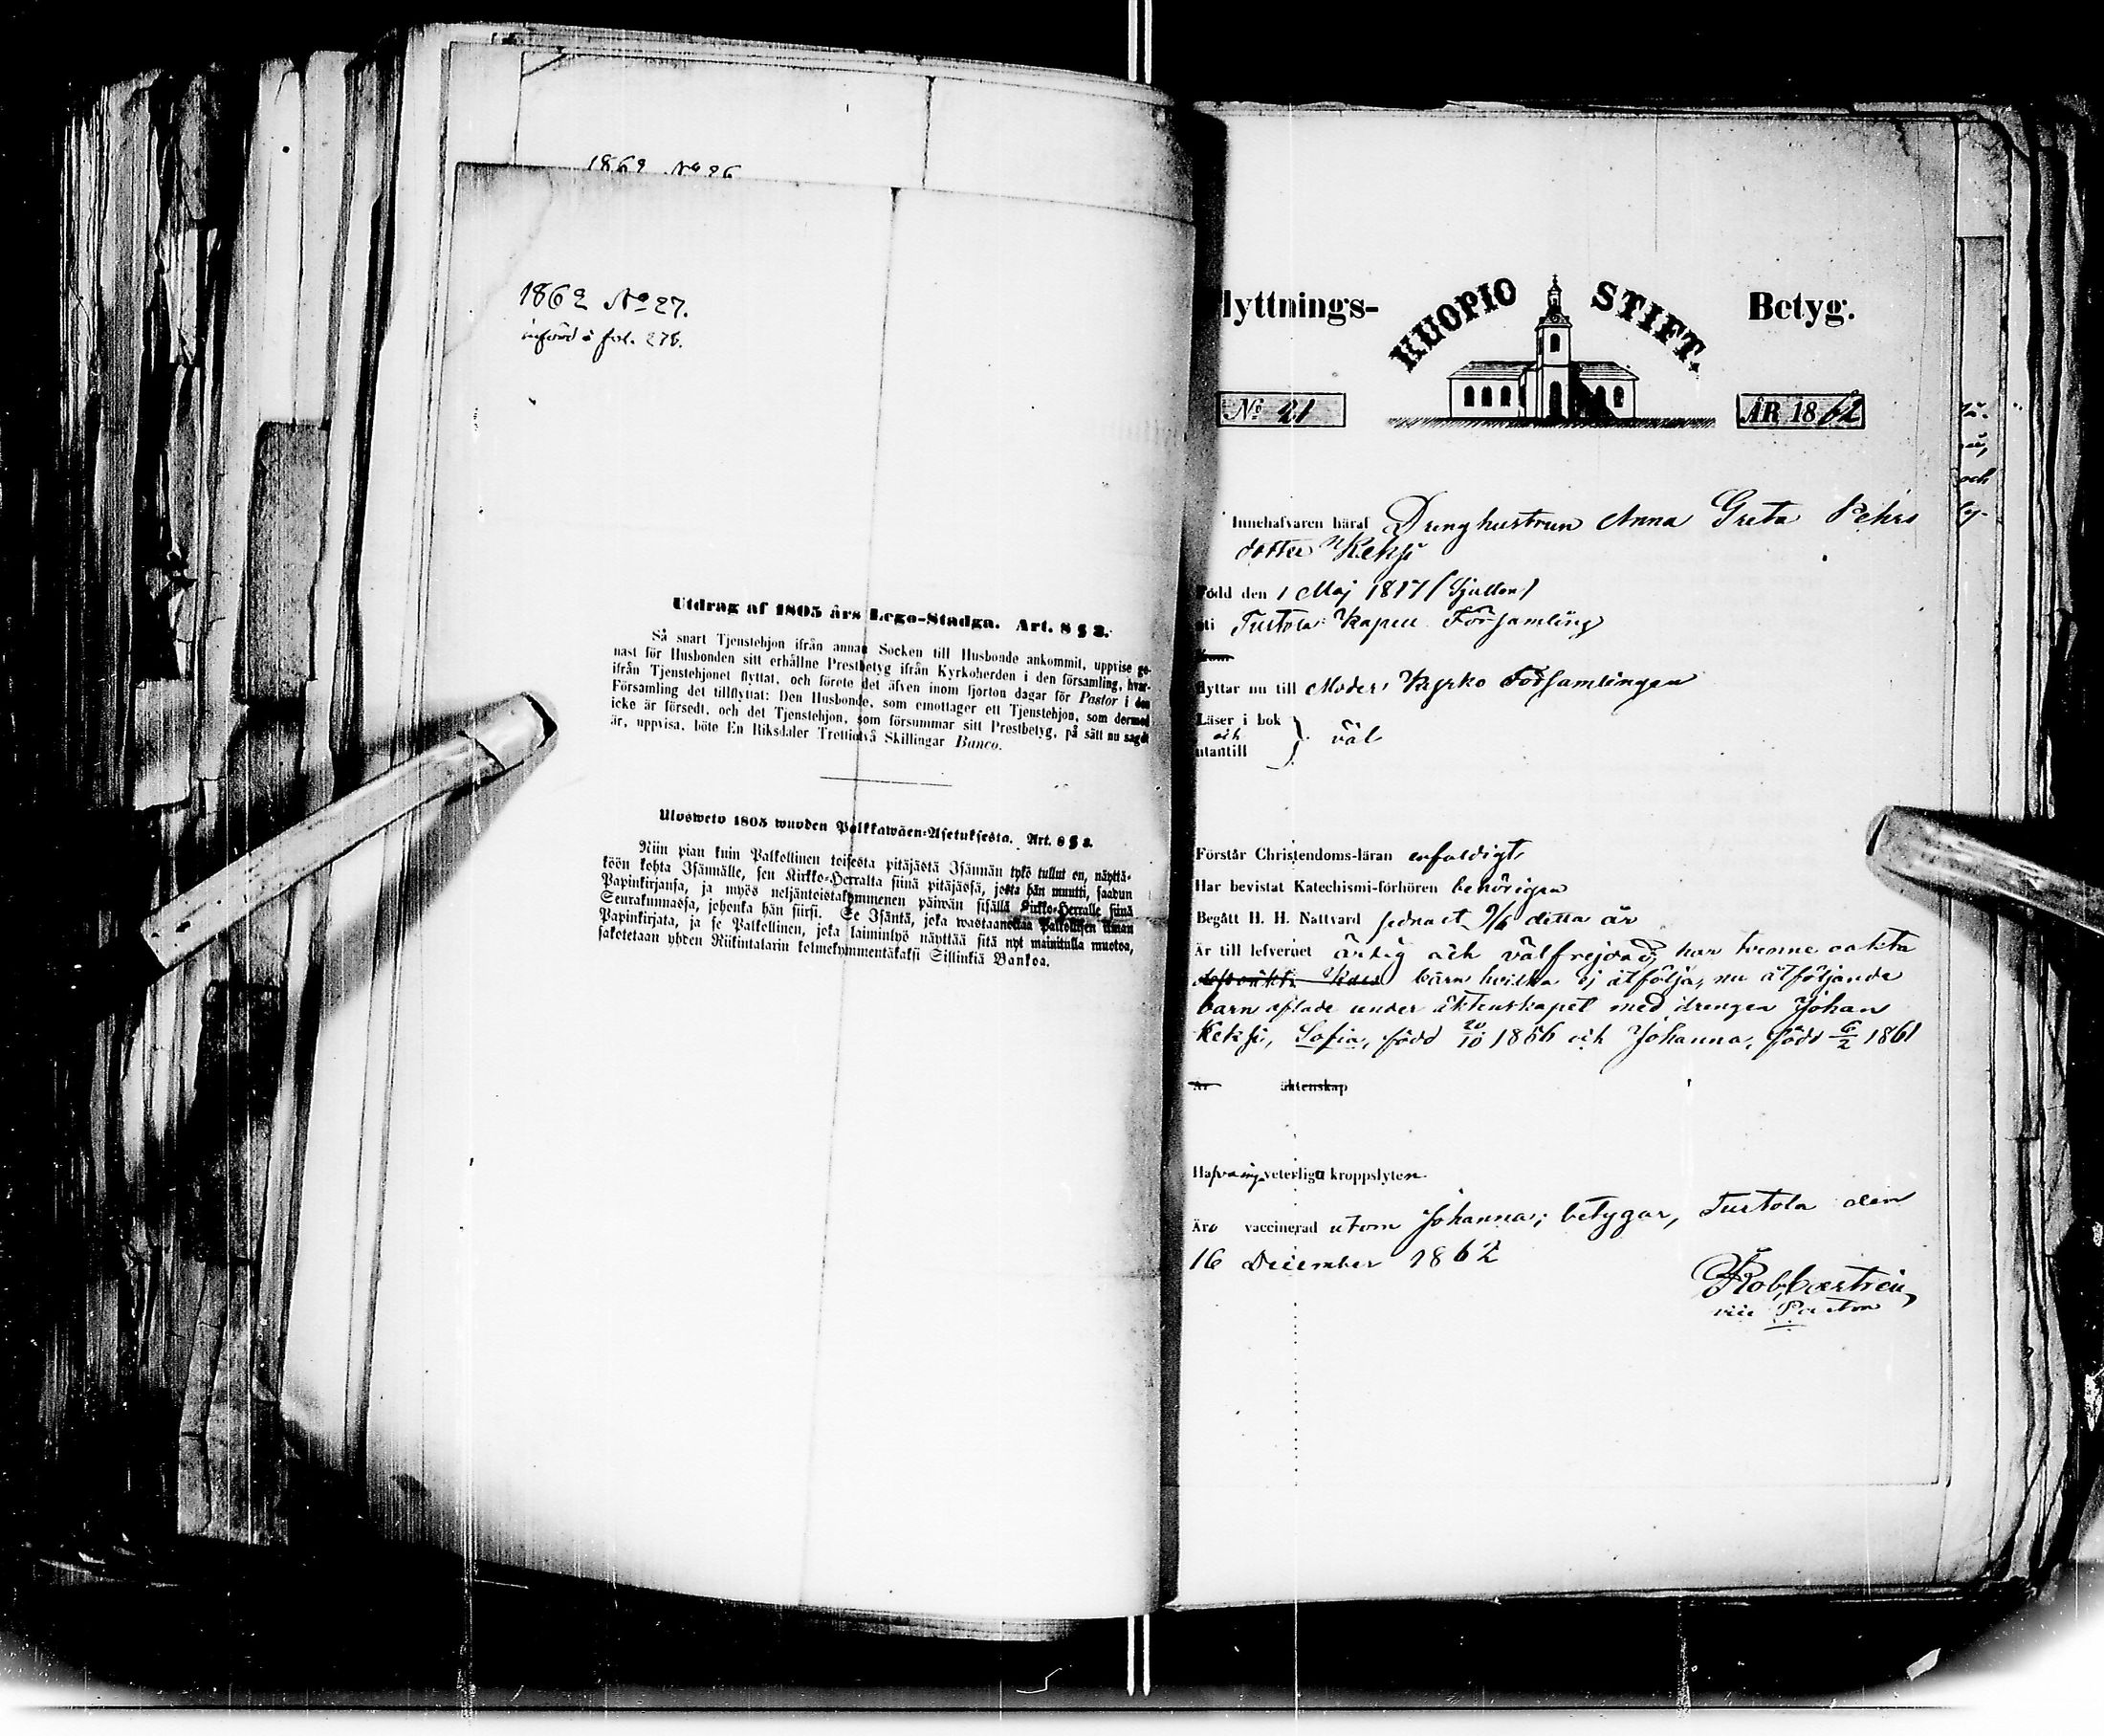 1862 No 26
1862 No 27.
införd å fol. 278.
Utdrag af 1805 års Lego-Stadga. Art. 8 § 3.
Så snart Tjenstehjon ifrån annan Socken till Husbonde ankommit, uppvise ge-
nast för Husbonden sitt erhållne Prestbetyg ifrån Kyrkoherden i den församling, hvar-
ifrån Tjenstehjonet flyttat, och förete det äfven inom fjorton dagar för Pastor i den
Församling det tillflyttat: Den Husbonde, som emottager ett Tjenstehjon, som dermed
icke är försedt, och det Tjenstehjon, som försummar sitt Prestbetyg, på sätt nu sagdt
är, uppvisa, böte En Riksdaler Trettiotvå Skillingar Banco.
Ulosweto 1805 wuoden Palkkawäen-Asetuksesta. Art. 8 § 3.
Niin pian kuin Palkollinen toisesta pitäjästä Isännän tykö tullut on, näyttä-
köön kohta Isännälle, sen Kirkko-Herralta siinä pitäjässä, josta hän muutti, saadun
Papinkirjansa, ja myös neljäntoistakymmenen päiwän sisällä Kirkko-Herralle siinä
Seurakunnassa, johonka hän siirsi. Se Isäntä, joka wastaanottaa Palkollisen ilman
Papinkirjata, ja se Palkollinen, joka laiminlyö näyttää sitä nyt mainitulla muotoa,
sakotetaan yhden Riikintalarin kolmekymmentäkaksi Sillinkiä Bankoa.
lyttnings- KUOPIO STIFT. Betyg.
No 21 ÅR 1862
Innehafvaren häraf Drenghustrun Anna Greta Pehrs
dotter Keksi
Född den 1 Maj 1817
uti Turtola Kapell Församling
flyttar nu till Moder Kyrko Församlingen
Läser i bok
och väl
utantill
Förstår Christendoms-läran enfaldigt
Har bevistat Katechismi-förhören behörigen
Begått H. H. Nattvard sednast 9/6 detta år
Är till lefvernet ärlig och välfrejdad, har tvenne oäkta
barn hvilka ej åtfölja, nu åtföljande
barn aflade under äktenskapet med drengen Johan
Keksi, Sofia, född 20/10 1856 och Johanna, född 6/2 1861
Är äktenskap
Hafva inga veterliga kroppslyten
Äro vaccinerad utom Johanna; betygar, Turtola den
16 December 1862
vice Pastor